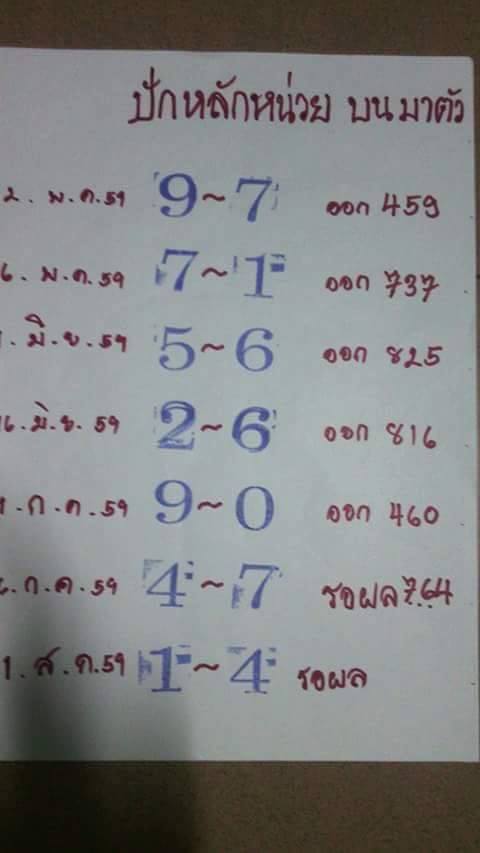 ปักหลักหน่วย บน มาตัว
2. พ.ค.59 9~7 ออก 459
6. พ.ค.59 7~1 ออก 737
. มิ.ย.59 5~6 ออก 825
16.มิ.ย.59 2~6 ออก 816
1.ก.ค.59 9~0 ออก 460
6.ก.ค.59 4~7 รอผล 764
1.ส.ค.59 1~4 รอผล